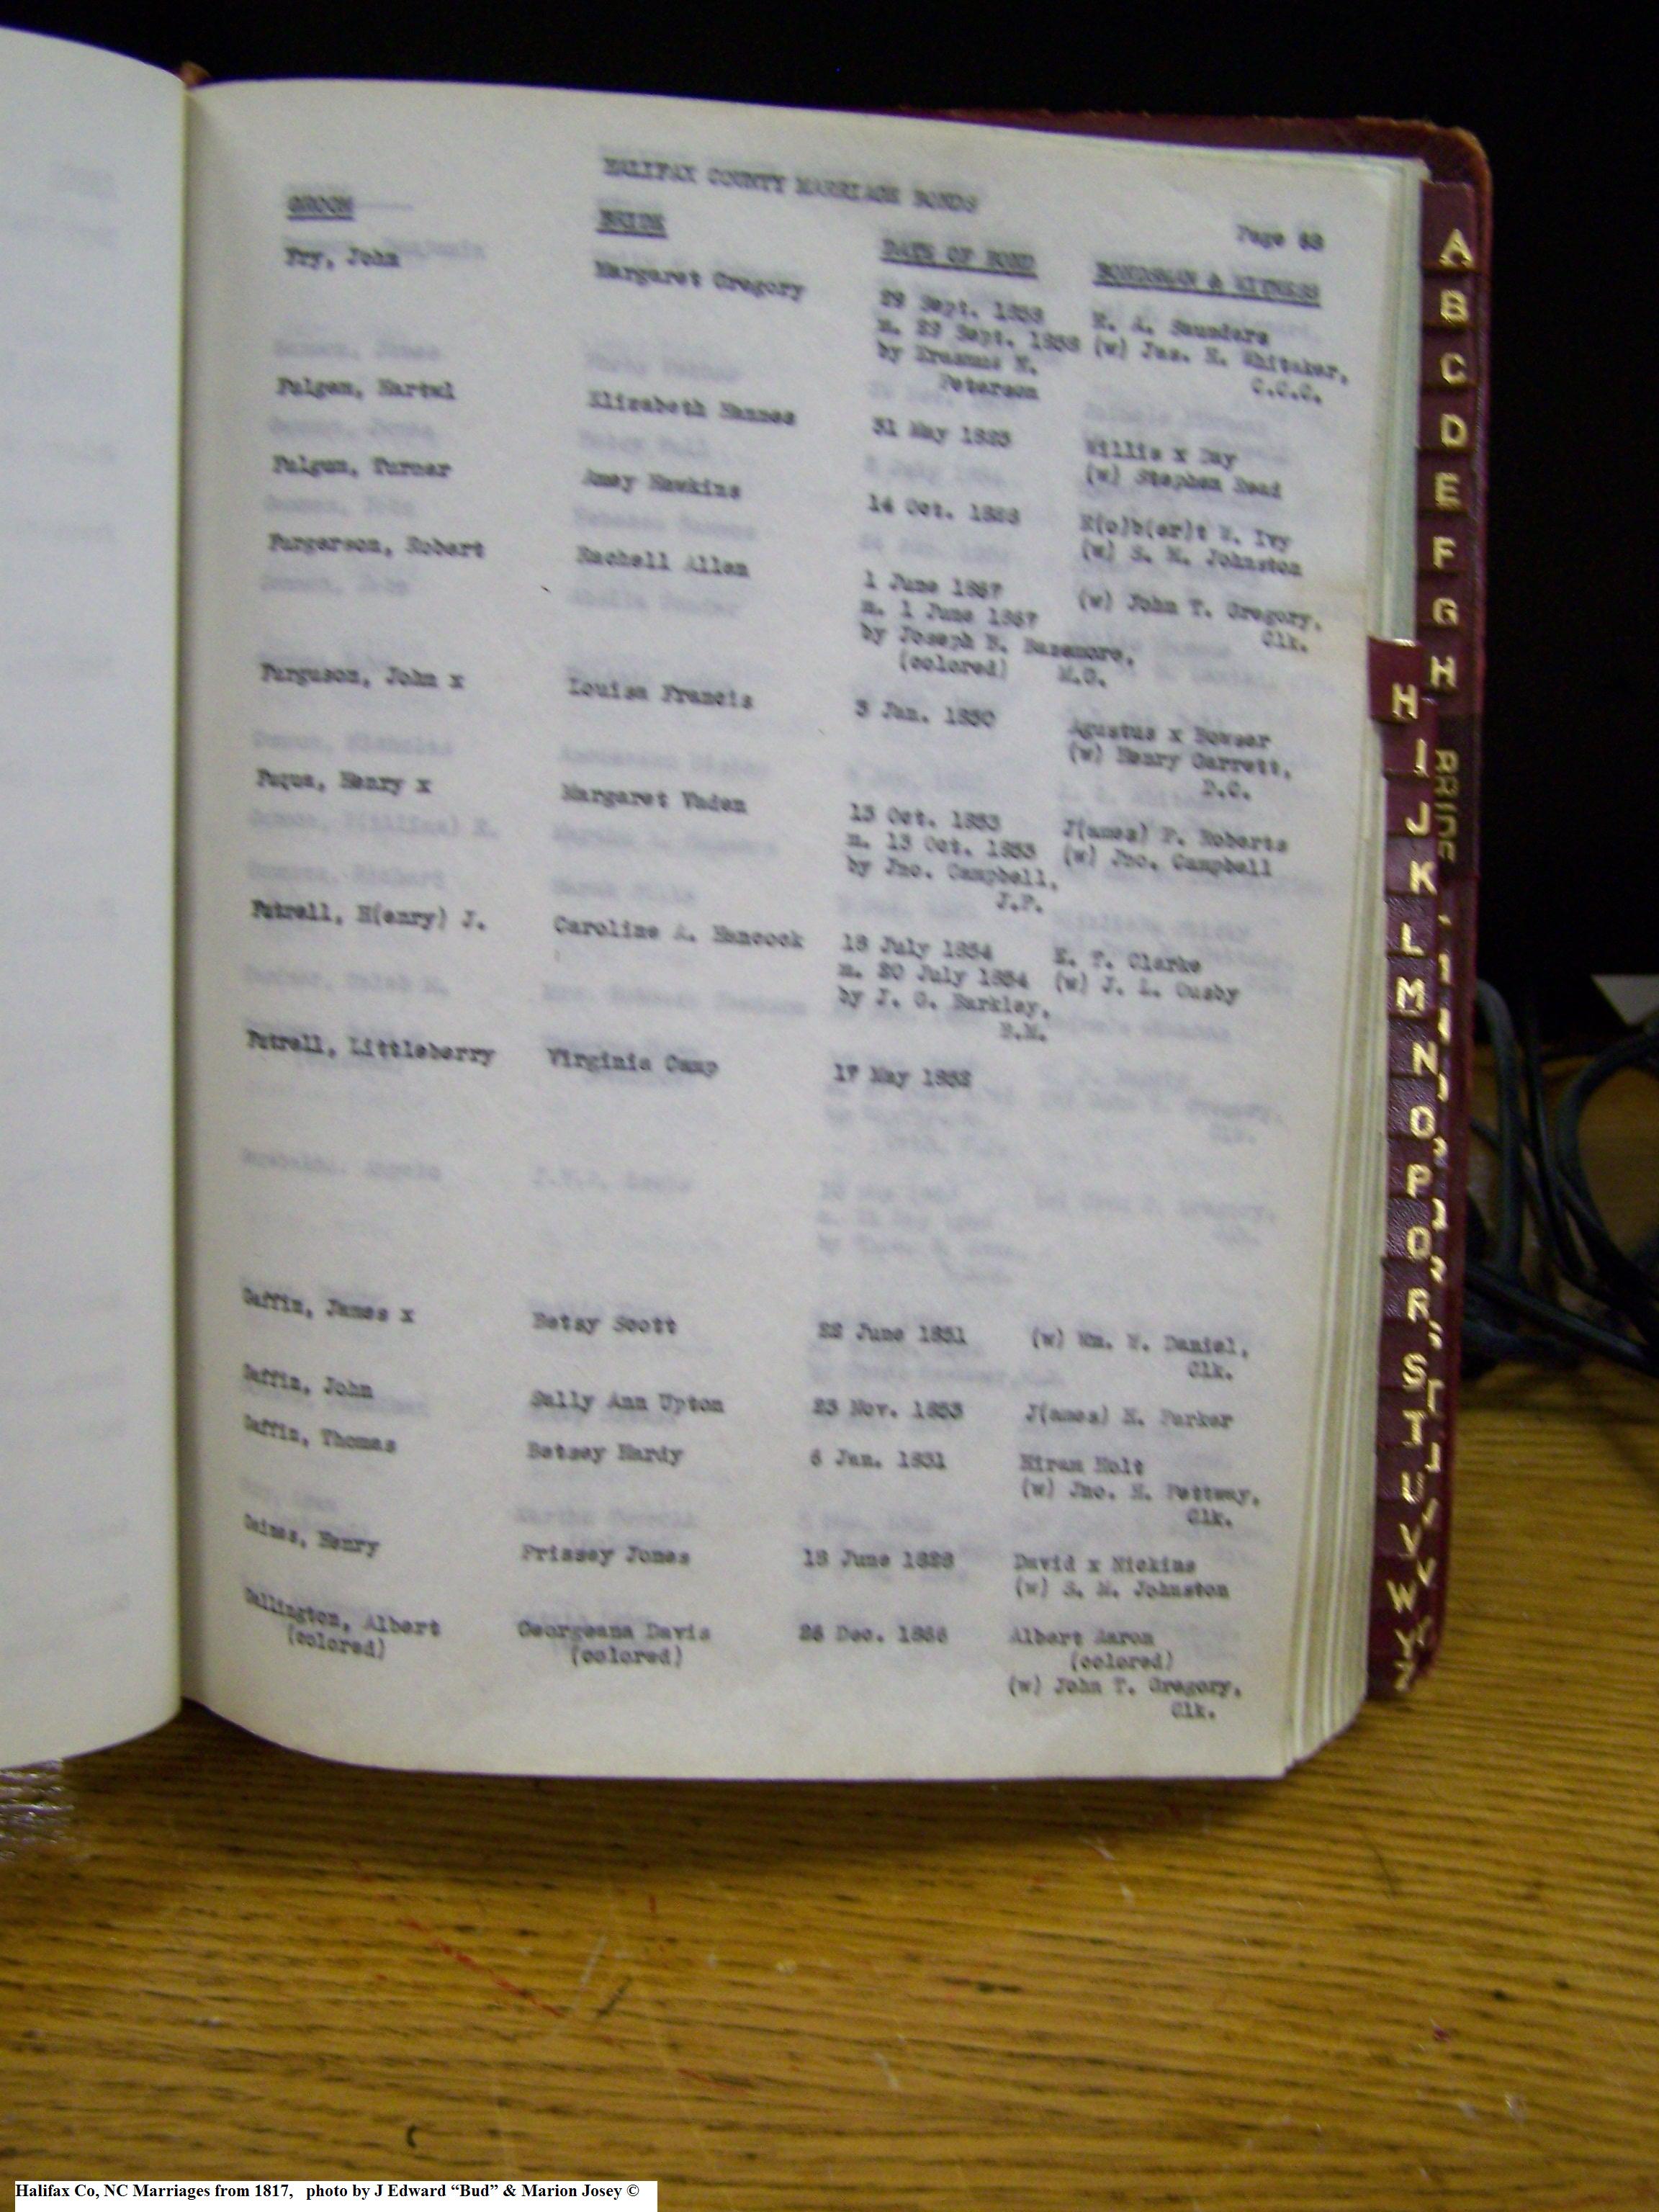 HALIFAX COUNTY MARRIAGE BONDS
Page
GROOM BRIDE DATE OF BOND BONDSMAN & WITNESS
Fry, John Margaret Gregory 29 Sept. 1858 H. A. Saunders
m. 29 Sept. 1858 (w) Jas. H. Whitaker,
by Erasmus H. C.C.C.
Peterson
Fulgem, Hartwl Elizabeth Hannes 31 May 1823 Willis x Day
(w) Stephen Read
Fulgum, Turner Amey Hawkins 14 Oct. 1828 R(o)b(er)t W. Ivy
(w) S. M. Johnston
Furgerson, Robert Rachell Allen 1 June 1867 (w) John T. Gregory,
m. 1 June 1867 Clk.
by Joseph B. Bazemore,
(colored) M.G.
Furguson, John x Louisa Francis 3 Jan. 1850 Agustus x Bowser
(w) Henry Garrett,
D.C.
Fuqua, Henry x Margaret Vaden 13 Oct. 1853 J(ames) P. Roberts
m. 13 Oct. 1853 (w) Jno. Campbell
by Jno. Campbell,
J.P.
Futrell, H(enry) J. Caroline A. Hancock 18 July 1854 E. T. Clarke
m. 20 July 1854 (w) J. L. Ousby
by J. G. Barkley,
B.M.
Futrell, Littleberry Virginia Camp 17 May 1852
Gaffin, James x Betsy Scott 22 June 1831 (w) Wm. W. Daniel,
Clk.
Gaffin, John Sally Ann Upton 23 Nov. 1853 J(ames) H. Parker
Gaffin, Thomas Betsey Hardy 6 Jan. 1831 Hiram Holt
(w) Jno. H. Pettway,
Clk.
Gaines, Henry Prissey Jones 18 June 1828 David x Nickins
(w) S. M. Johnston
Gallington, Albert Georgeana Davis 26 Dec. 1866 Albert Aaron
(colored) (colored) (colored)
(w) John T. Gregory,
Clk.
A
B
C
D
E
F
G
H
H
I
J
K
L
M
N
O
P
Q
R
S
T
U
V
W
Y
Z
Halifax Co, NC Marriages from 1817, photo by J Edward “Bud” & Marion Josey ©